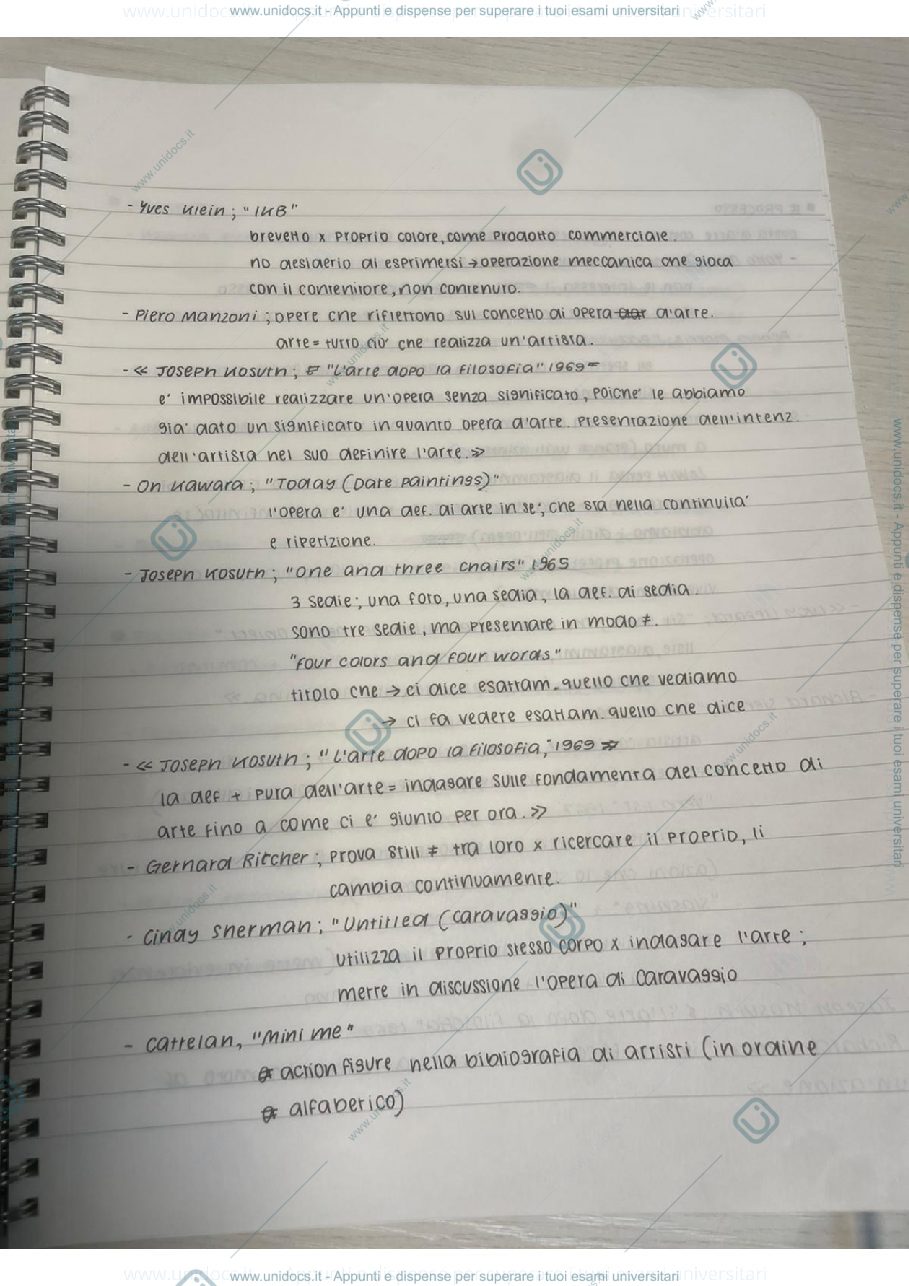 www.unidocs.it - Appunti e dispense per superare i tuoi esami universitari
- Yves Klein ; "IKB"
brevetto x proprio colore, come prodotto commerciale.
no desiderio di esprimersi → operazione meccanica che gioca
con il contenitore, non contenuto.
- Piero Manzoni ; opere che riflettono sul concetto di opera d'arte.
arte = tutto ciò che realizza un'artista.
- << Joseph Kosuth ; "L'arte dopo la filosofia" 1969
e' impossibile realizzare un'opera senza significato, poiche' le abbiamo
gia' dato un significato in quanto opera d'arte. Presentazione dell'intenz.
dell'artista nel suo definire l'arte. >>
- On Kawara ; "Today (Date Paintings)"
l'opera e' una def. di arte in se', che sta nella continuita'
e ripetizione.
- Joseph Kosuth ; "One and three chairs" 1965
3 sedie ; una foto, una sedia, la def. di sedia.
sono tre sedie, ma presentare in modo ≠.
"Four colors and four words"
titolo che → ci dice esattam. quello che vediamo
→ ci fa vedere esattam. quello che dice
- << Joseph Kosuth ; "L'arte dopo la filosofia", 1969
la def + pura dell'arte = indagare sulle fondamenta del concetto di
arte fino a come ci e' giunto per ora. >>
- Gerhard Ritcher ; prova stili ≠ tra loro x ricercare il proprio, li
cambia continuamente.
- Cindy Sherman ; "Untitled (Caravaggio)"
utilizza il proprio stesso corpo x indagare l'arte ;
mette in discussione l'opera di Caravaggio
- Cattelan, "Mini me"
action figure nella bibliografia di artisti (in ordine
alfabetico)
www.unidocs.it - Appunti e dispense per superare i tuoi esami universitari
www.unidocs.it - Appunti e dispense per superare i tuoi esami universitari